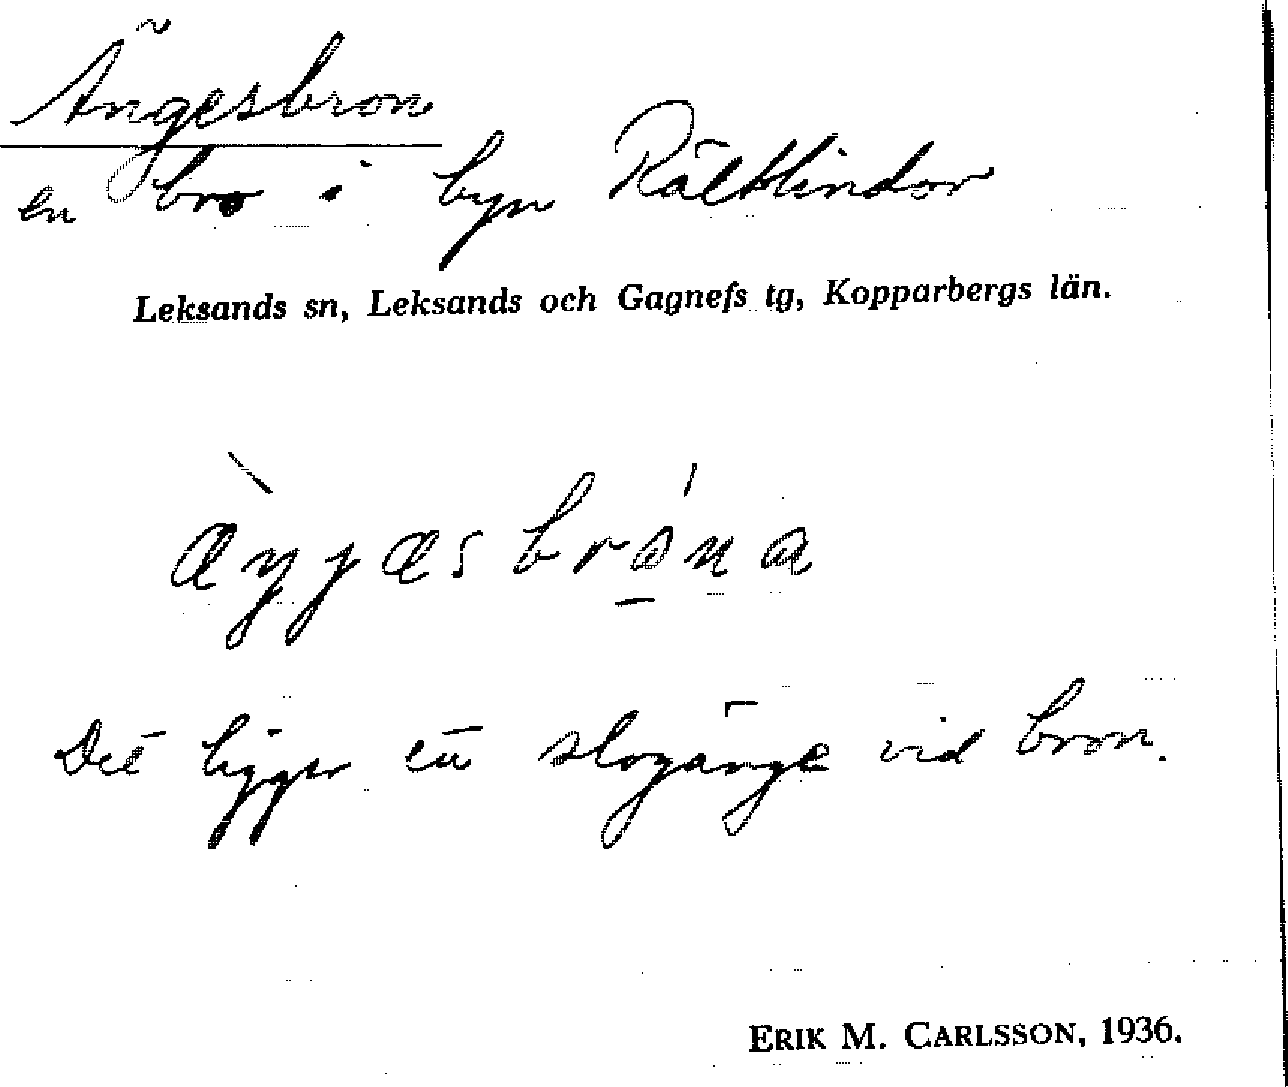 Ängesbron
en bro i byn Rältlindor
Leksands sn, Leksands och Gagnefs tg, Kopparbergs län.
æŋjæsbrona
Det ligger ett slogänge vid bron.
ERIK M. CARLSSON, 1936.